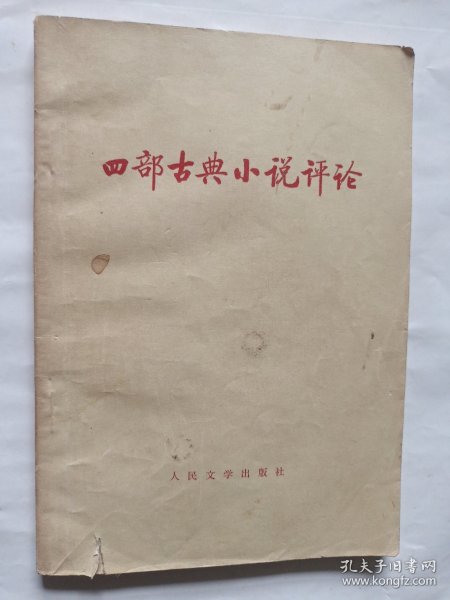 四部古典小说评论
人民文学出版社
孔夫子旧书网
www.kongfz.com